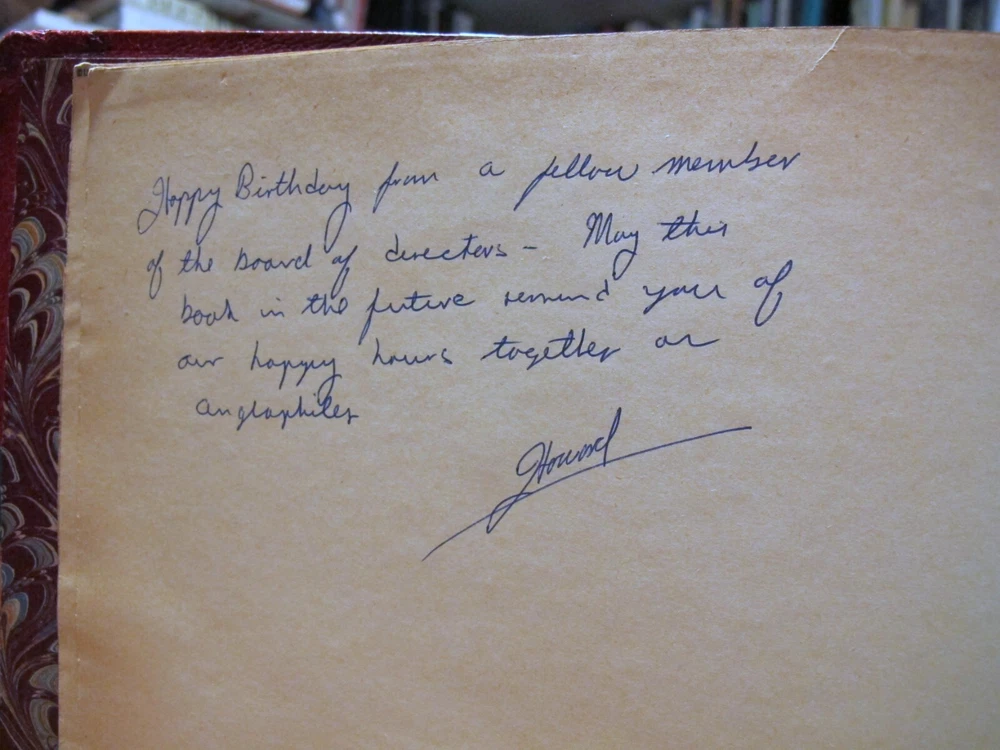 Happy Birthday from a fellow member
of the board of directers - May this
book in the future remind you of
our happy hours together as
anglophiles
Howard